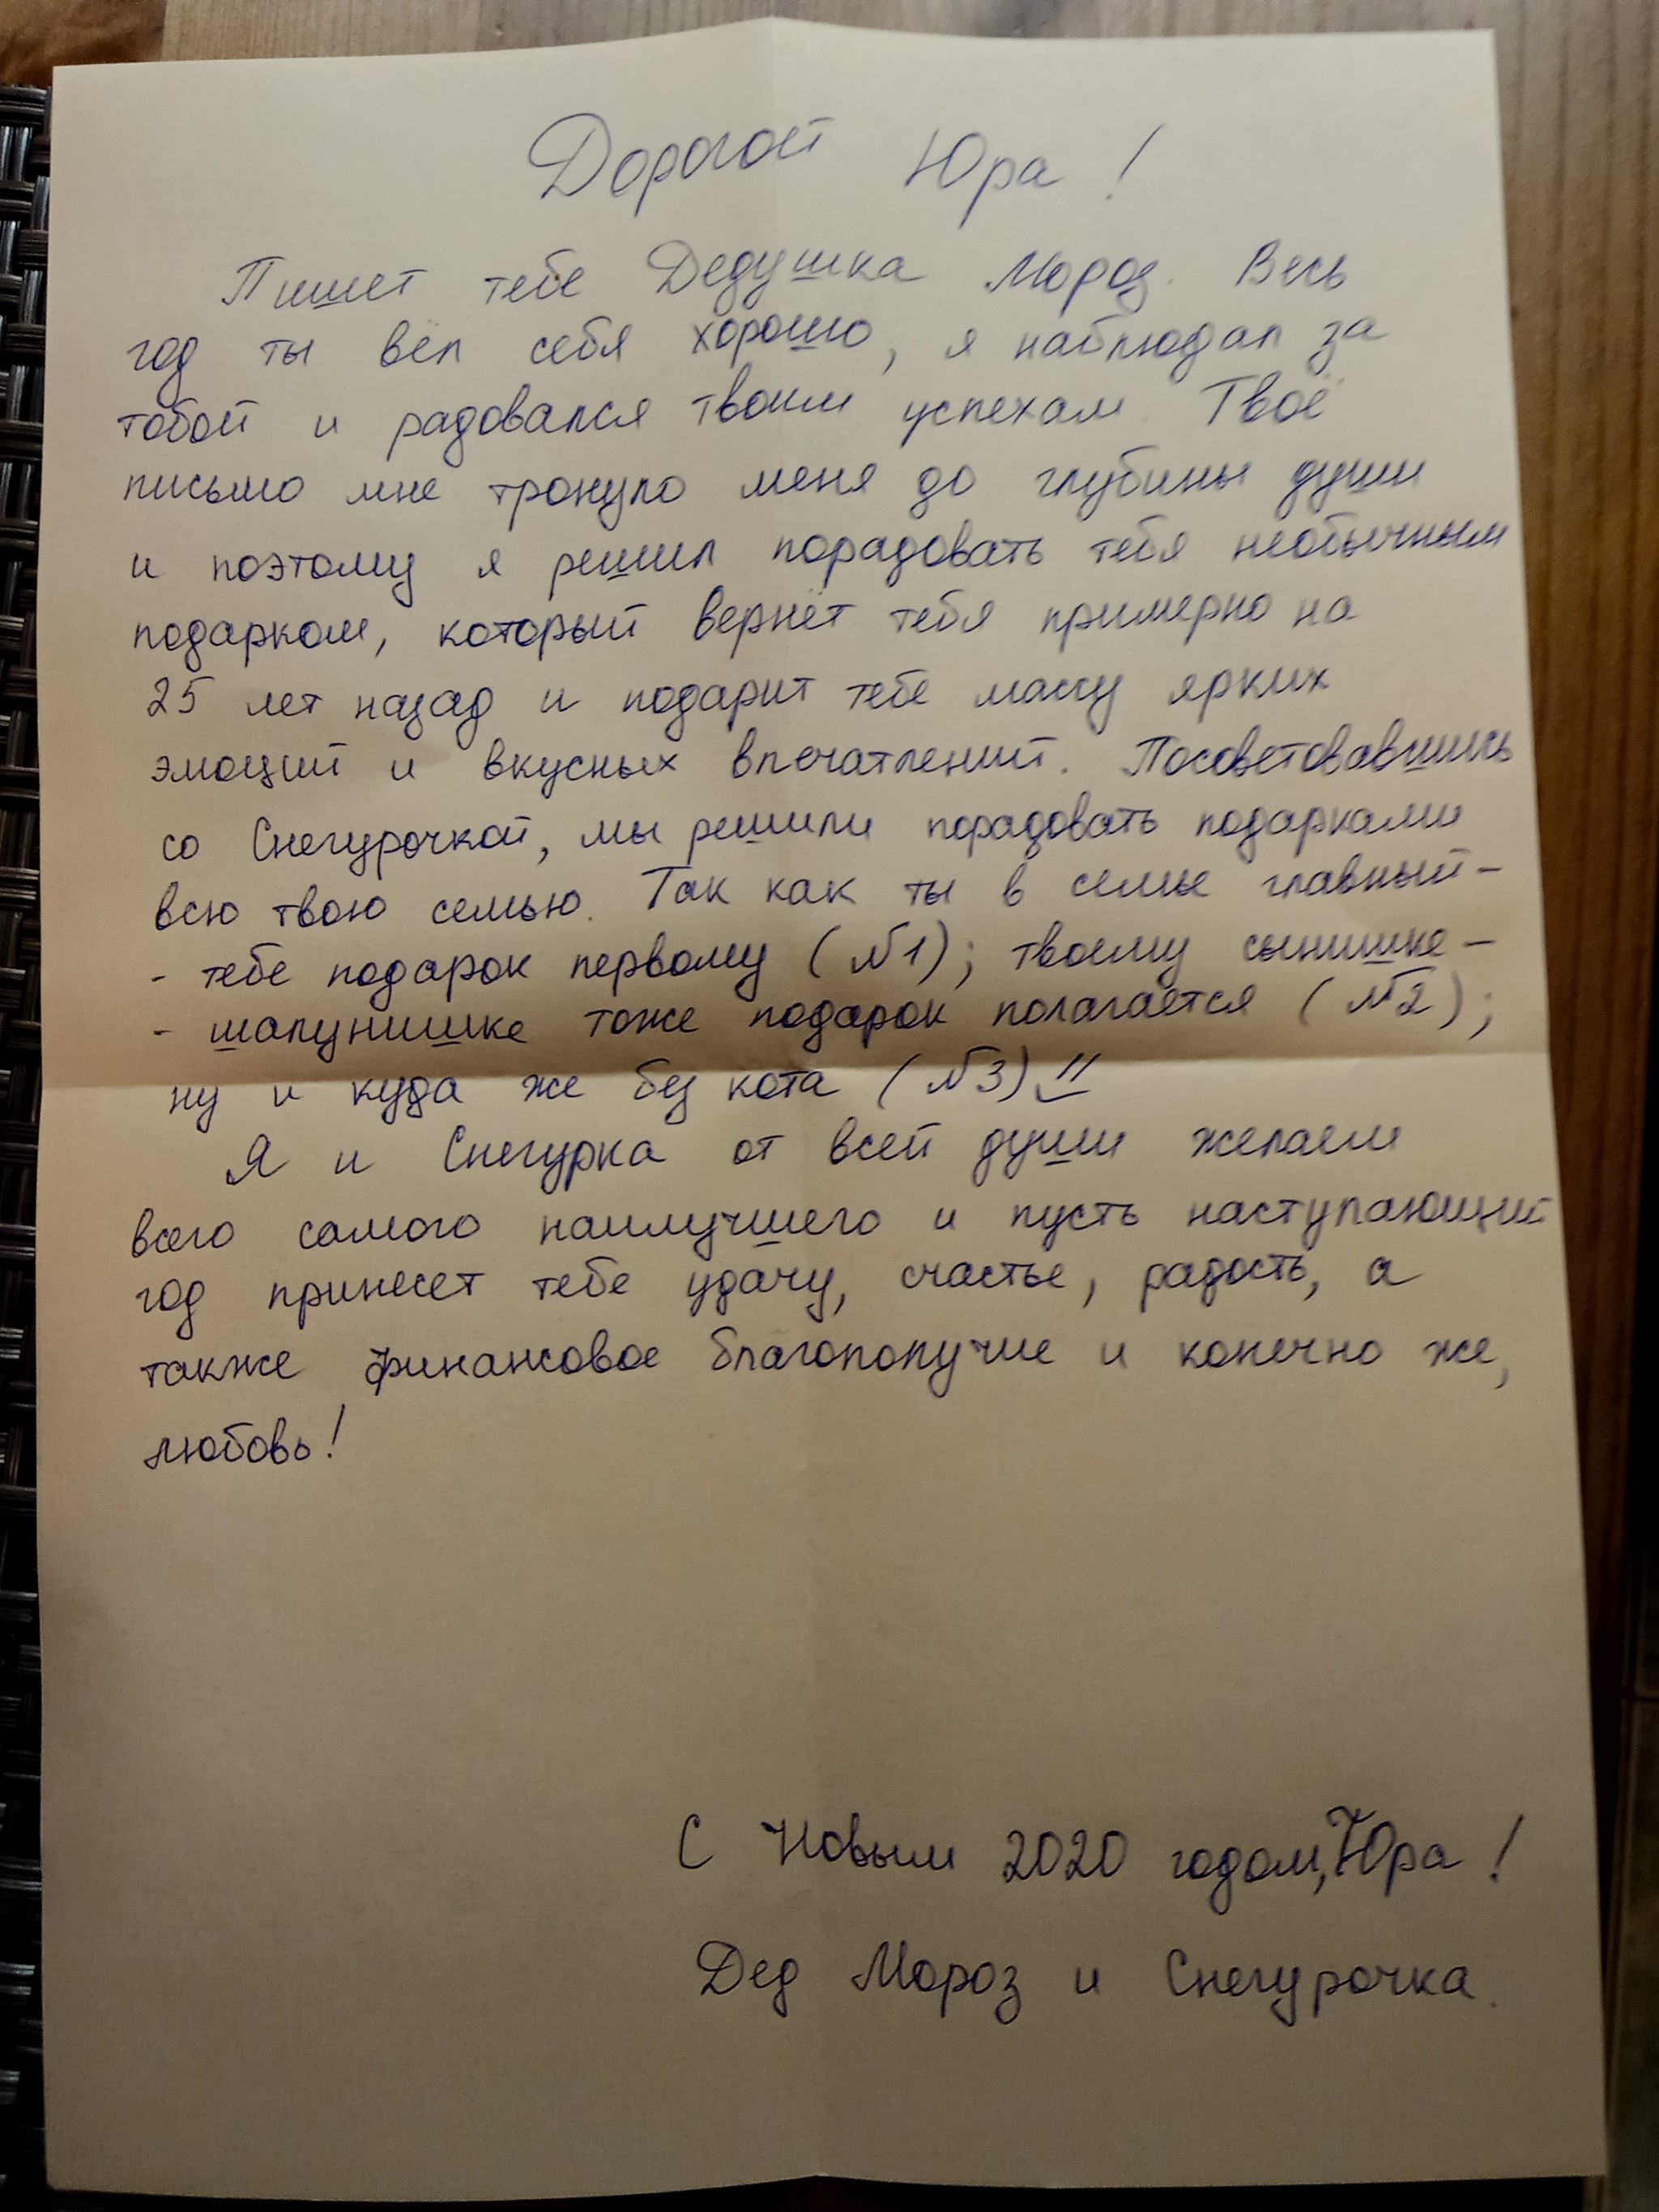 Дорогой Юра!
Пишет тебе Дедушка Мороз. Весь
год ты вёл себя хорошо, я наблюдал за
тобой и радовался твоим успехам. Твоё
письмо мне тронуло меня до глубины души
и поэтому я решил порадовать тебя необычным
подарком, который вернёт тебя примерно на
25 лет назад и подарит тебе массу ярких
эмоций и вкусных впечатлений. Посоветовавшись
со Снегурочкой, мы решили порадовать подарками
всю твою семью. Так как ты в семье главный -
- тебе подарок первому (№1); твоему сынишке -
- шалунишке тоже подарок полагается (№2);
ну и куда же без кота (№3)
Я и Снегурка от всей души желаем
всего самого наилучшего и пусть наступающий
год принесет тебе удачу, счастье, радость, а
также финансовое благополучие и конечно же,
любовь!
С Новым 2020 годом, Юра!
Дед Мороз и Снегурочка.